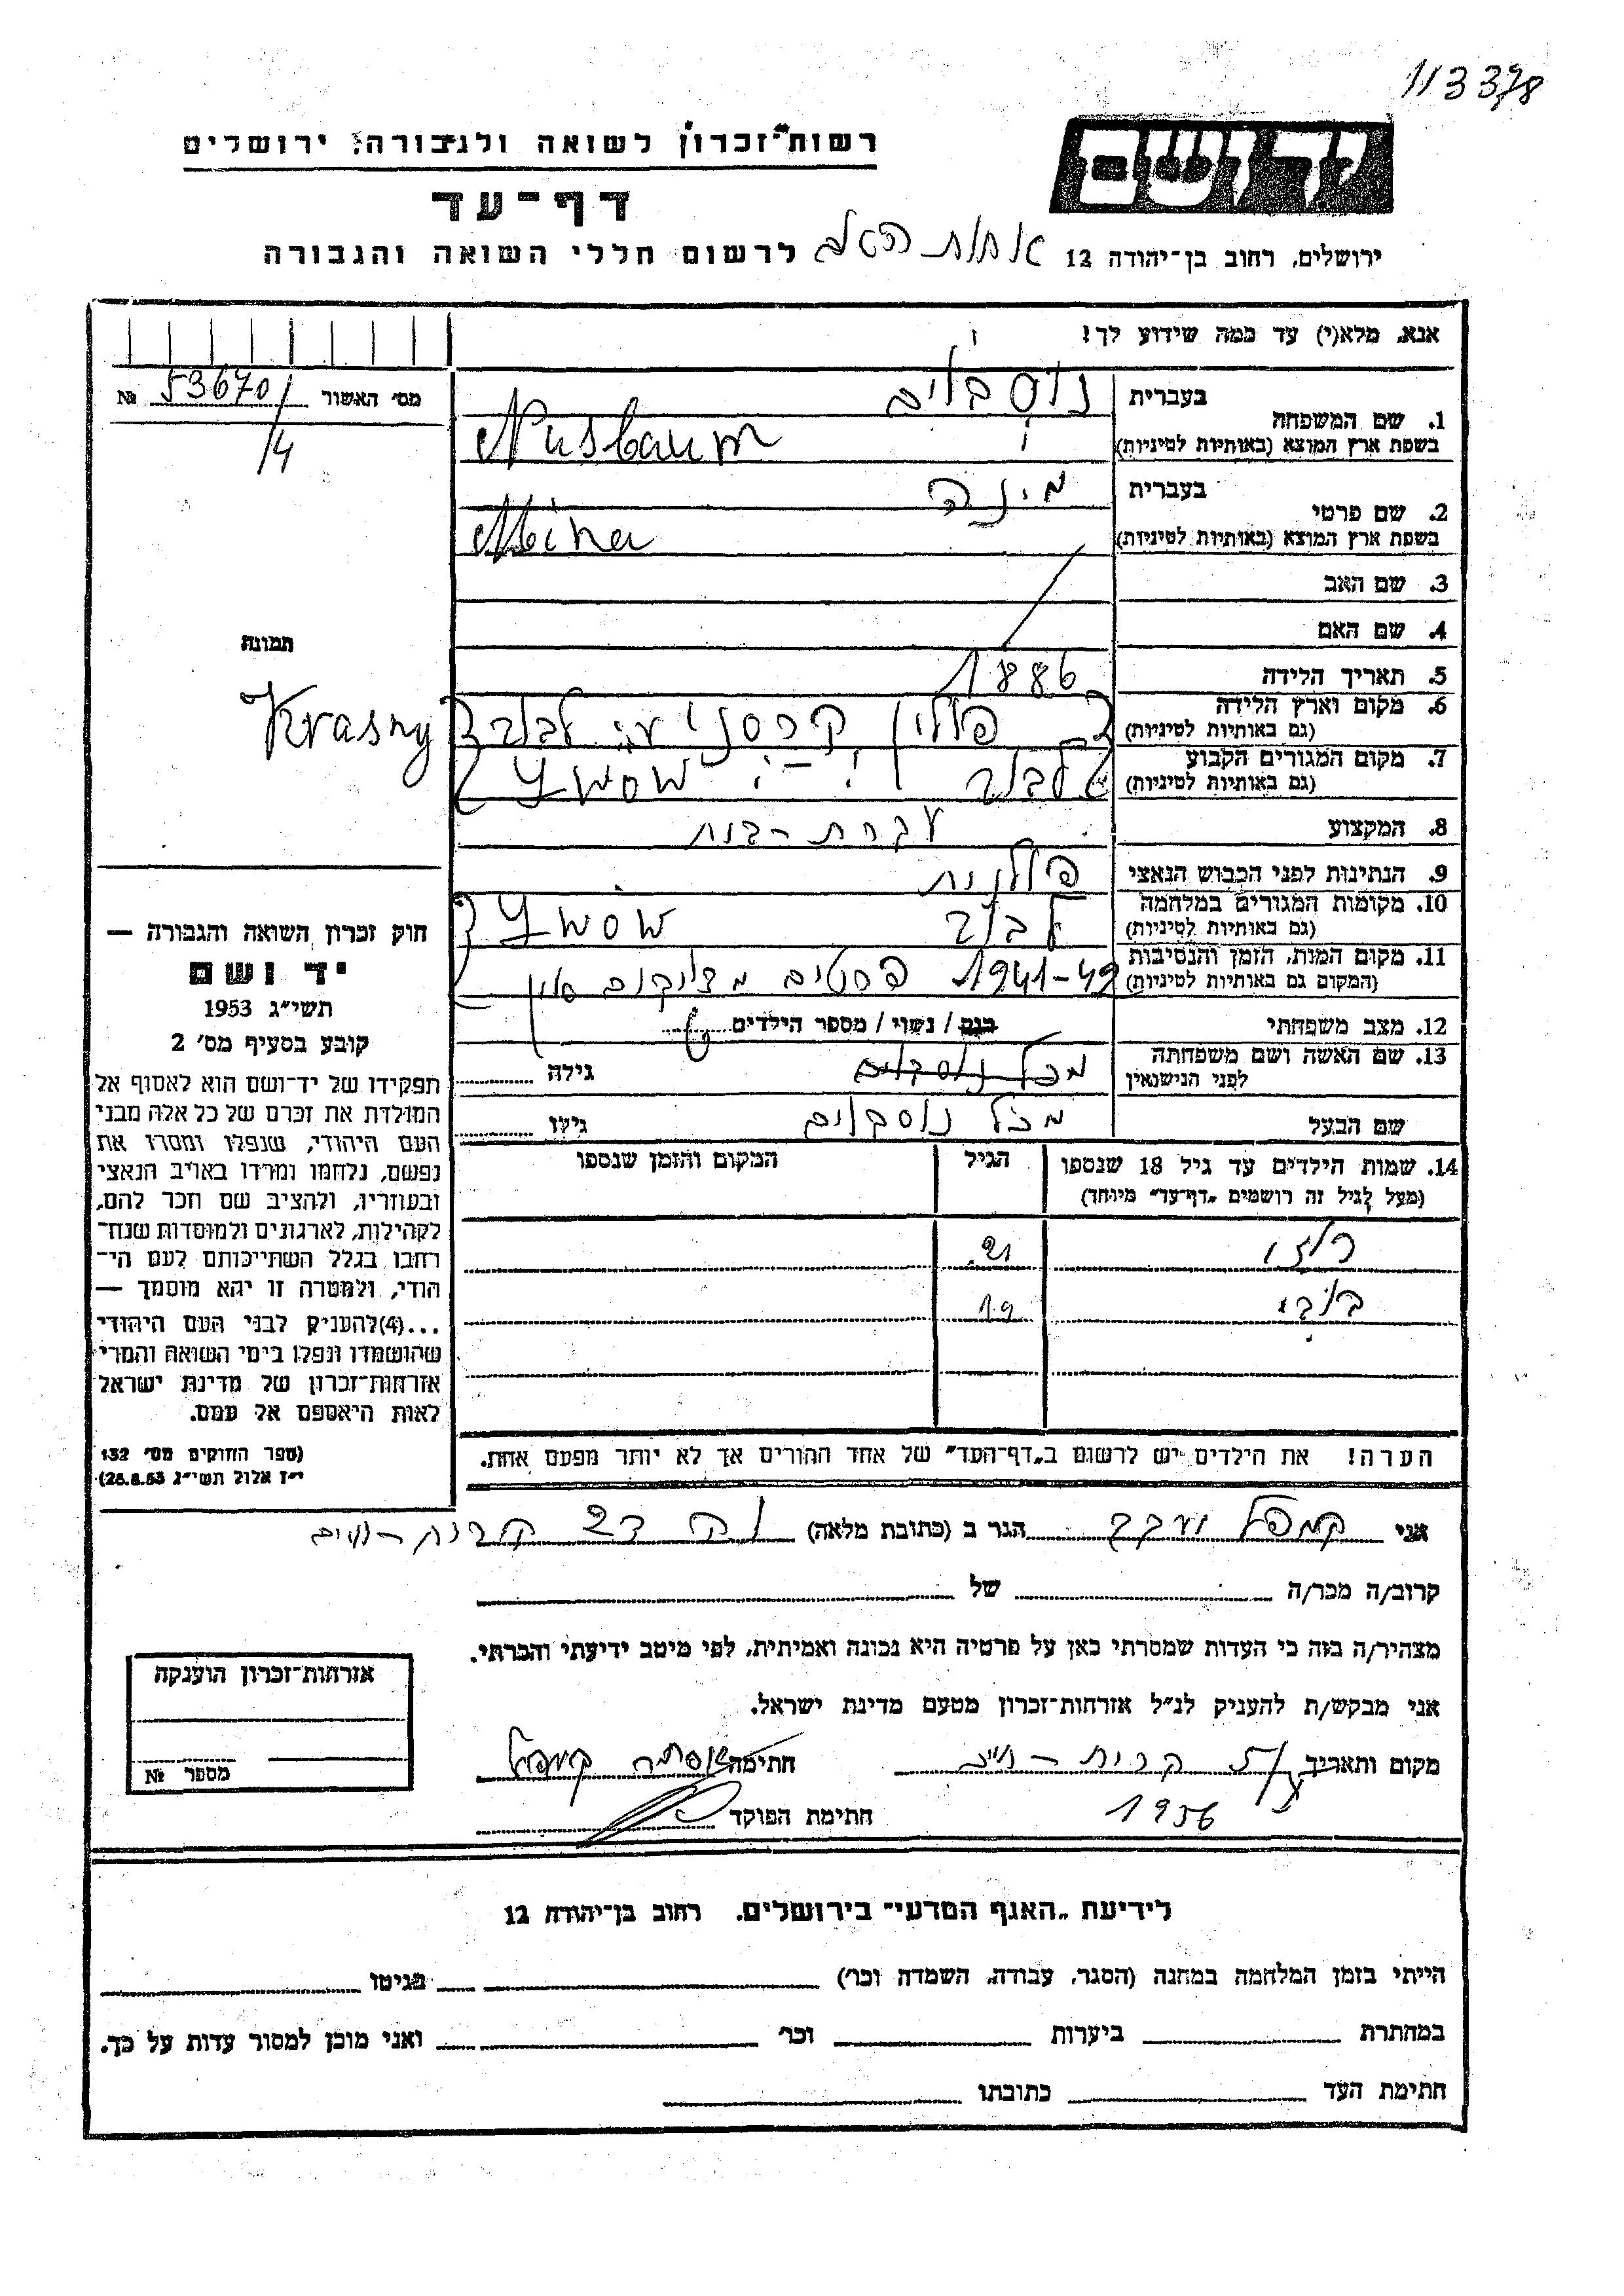 113378
רשות־זכרון לשואה ולגבורה, ירושלים
יד ושם
דף־עד
ירושלים, רחוב בן־יהודה 12
לרשום חללי השואה והגבורה
אחות האב
אנא, מלא(י) עד כמה שידוע לך!
מס' האשור 53670/4 №
1. שם המשפחה
בעברית נוסבוים
בשפת ארץ המוצא (באותיות לטיניות) Nusbaum
2. שם פרטי
בעברית מינה
בשפת ארץ המוצא (באותיות לטיניות) Mina
3. שם האב
4. שם האם
תמונה
5. תאריך הלידה 1886
6. מקום וארץ הלידה
(גם באותיות לטיניות) פולין קרסני ע"י לבוב Krasny
7. מקום המגורים הקבוע
(גם באותיות לטיניות) לבוב Lwów
8. המקצוע עקרת-בית
9. הנתינות לפני הכבוש הנאצי פולנית
10. מקומות המגורים במלחמה
(גם באותיות לטיניות) לבוב Lwów
11. מקום המות, הזמן והנסיבות
(המקום גם באותיות לטיניות) 1941-42 פרטים מדויקים אין
12. מצב משפחתי רווק / נשוי / מספר הילדים 6
13. שם האשה ושם משפחתה
לפני הנישואין גילה
שם הבעל מכל נוסבוים גילו
14. שמות הילדים עד גיל 18 שנספו
(מעל לגיל זה רושמים „דף־עד” מיוחד)
הגיל
המקום והזמן שנספו
רוזי 21
19
הערה! את הילדים יש לרשום ב„דף־העד” של אחד ההורים אך לא יותר מפעם אחת.
חוק זכרון השואה והגבורה —
יד ושם
תשי"ג 1953
קובע בסעיף מס' 2
תפקידו של יד־ושם הוא לאסוף אל
המולדת את זכרם של כל אלה מבני
העם היהודי, שנפלו ומסרו את
נפשם, נלחמו ומרדו באויב הנאצי
ובעוזריו, ולהציב שם וזכר להם,
לקהילות, לארגונים ולמוסדות שנח־
רבו בגלל השתייכותם לעם הי־
הודי, ולמטרה זו יהא מוסמך —
...(4) להעניק לבני העם היהודי
שהושמדו ונפלו בימי השואה והמרי
אזרחות־זכרון של מדינת ישראל
לאות היאספם אל עמם.
(ספר החוקים מס' 132
י"ז אלול תשי"ג 28.8.53)
אני קמפל הגר ב (כתובת מלאה) קרית-חיים
קרוב/ה מכר/ה של
מצהיר/ה בזה כי העדות שמסרתי כאן על פרטיה היא נכונה ואמיתית, לפי מיטב ידיעתי והכרתי.
אני מבקש/ת להעניק לנ"ל אזרחות־זכרון מטעם מדינת ישראל.
מקום ותאריך קרית-חיים
1956
חתימה אסתר קמפל
חתימת הפוקד
אזרחות־זכרון הוענקה
מספר №
לידיעת „האגף המדעי” בירושלים, רחוב בן־יהודה 12
הייתי בזמן המלחמה במחנה (הסגר, עבודה, השמדה וכו') בגיטו
במחתרת ביערות וכו' ואני מוכן למסור עדות על כך.
חתימת העד כתובתו